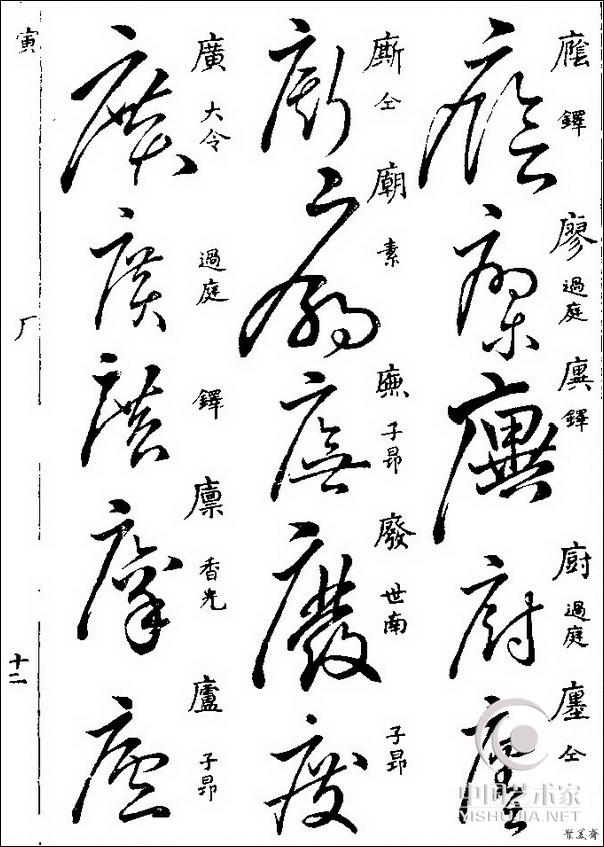 廕 鐸
廖 過庭
廙 鐸
廚 過庭
廛 仝
廝 仝
廟 素
廡 子昂
廢 世南
子昂
廣 大令
過庭
鐸
廪 香光
廬 子昂
寅
广
十二
中国艺术家
YISHUJIA.NET